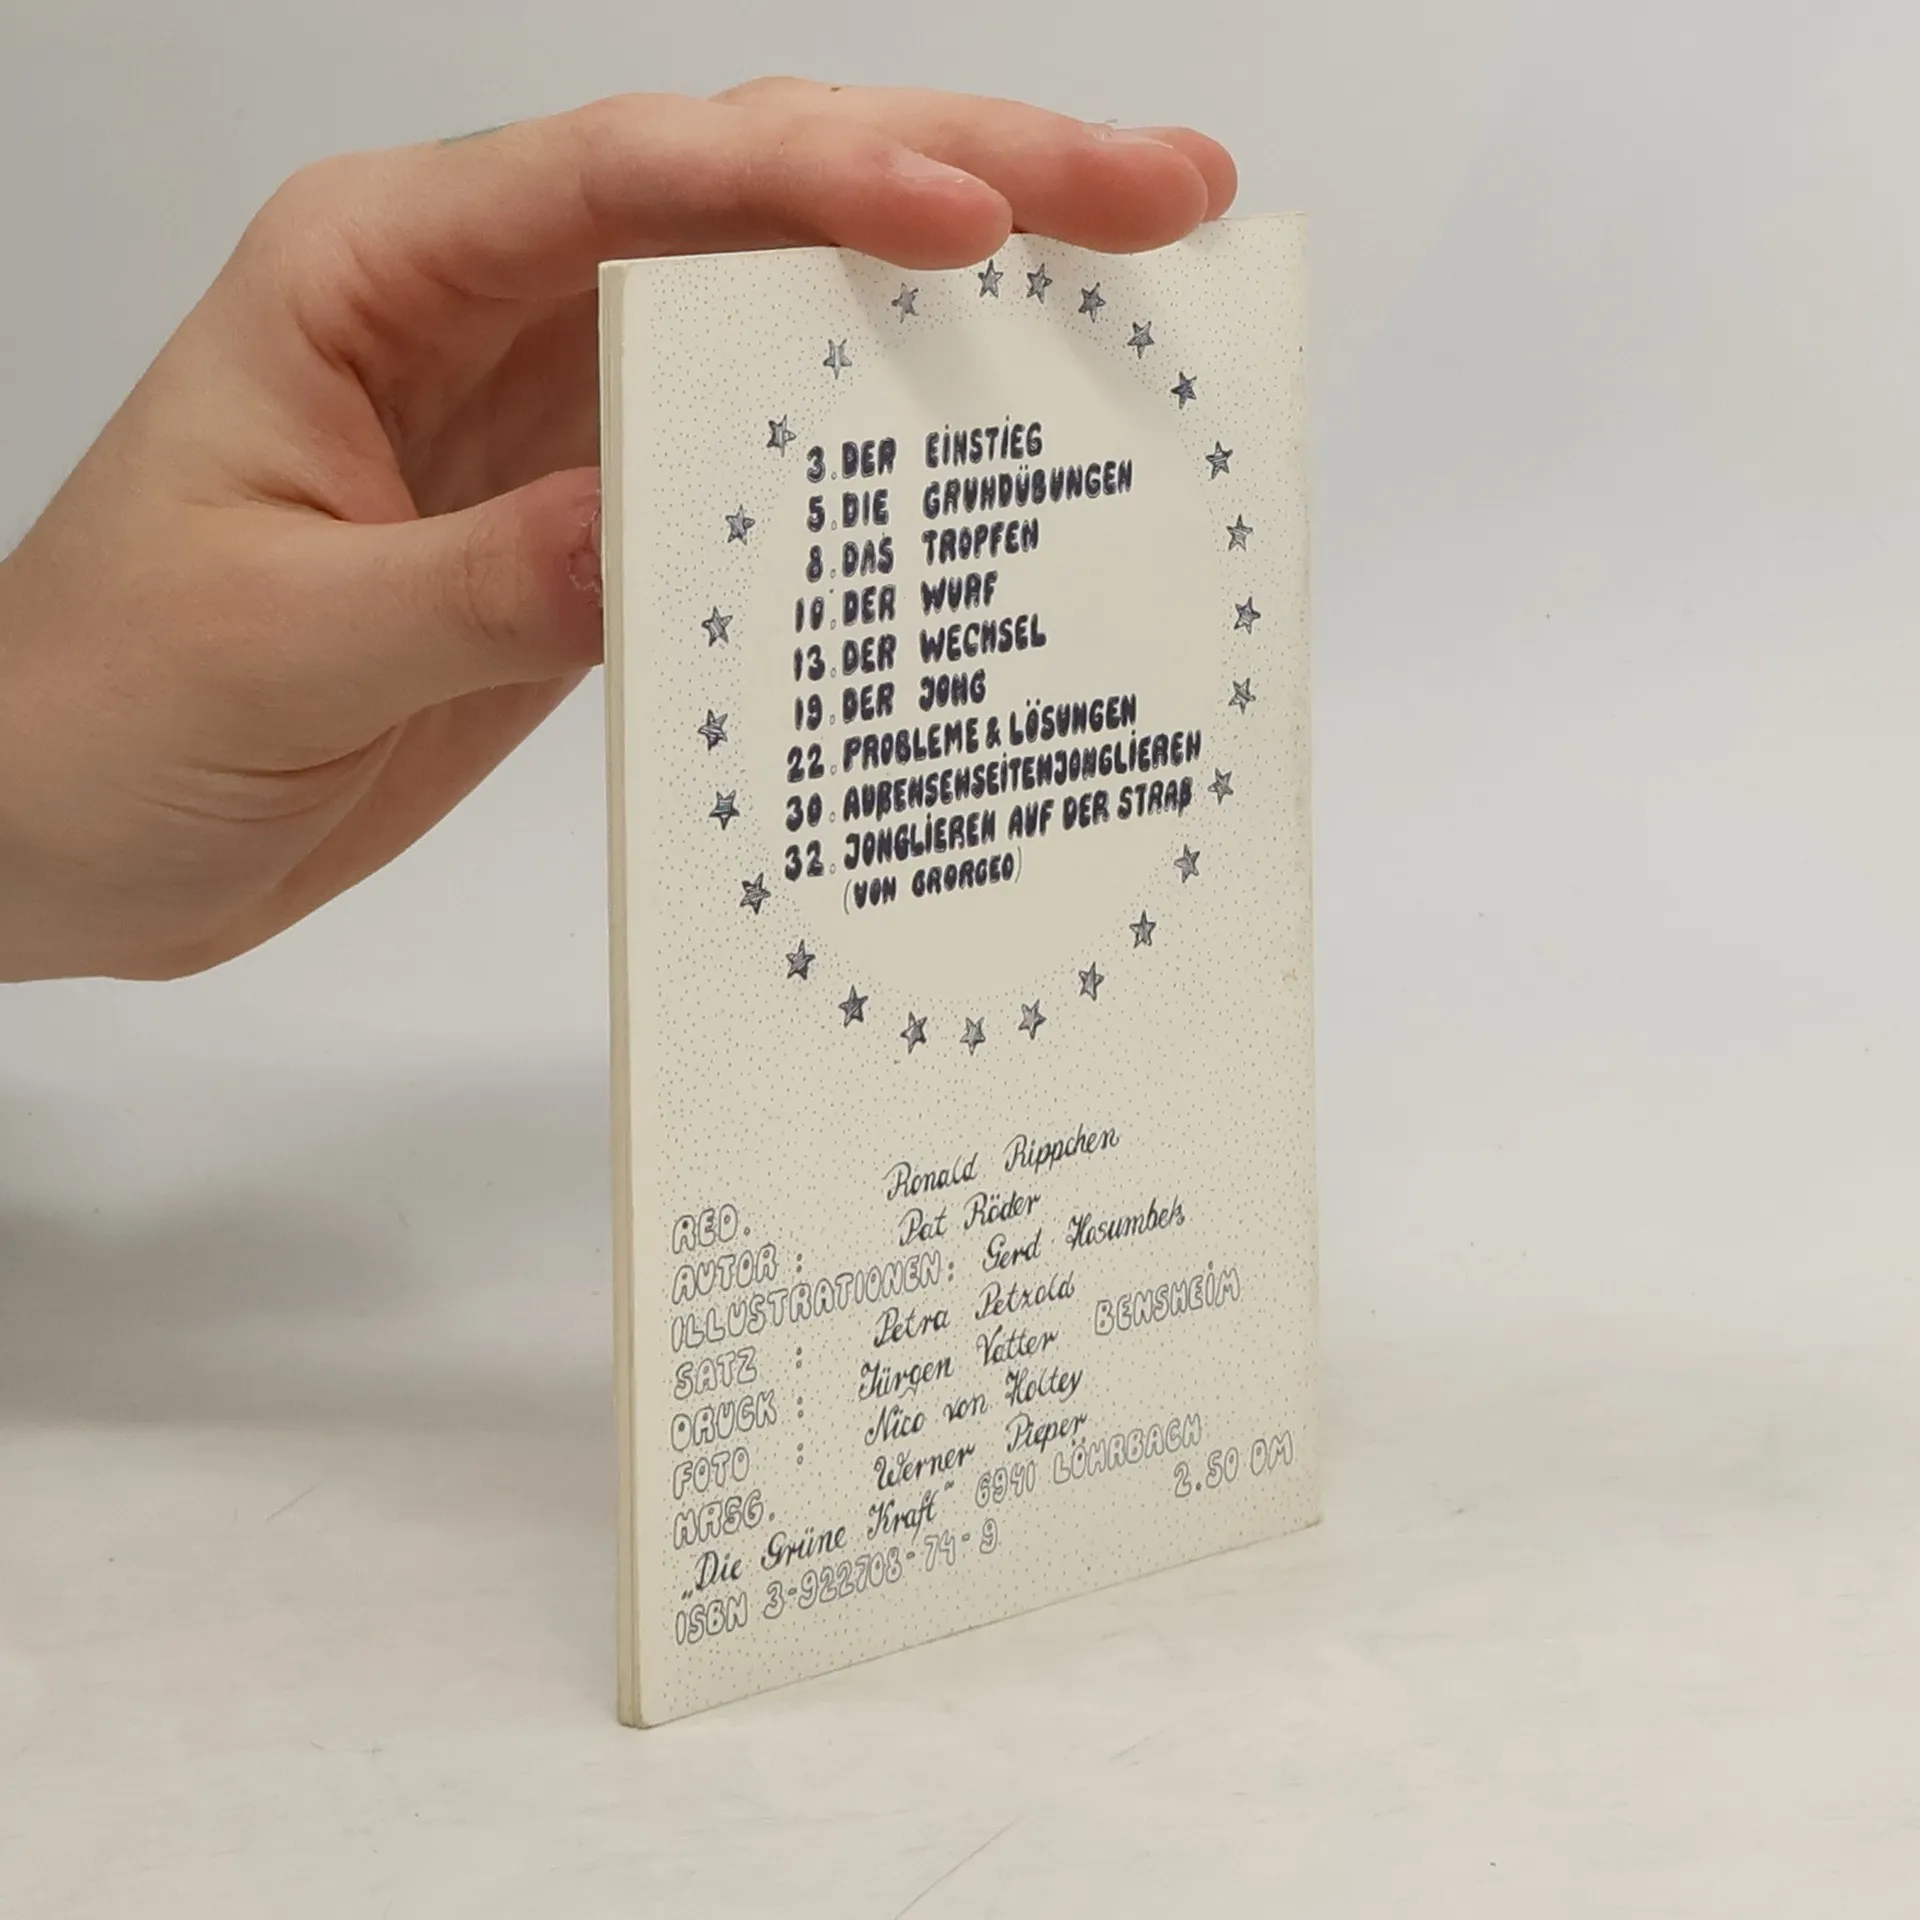 3. DER EINSTIEG
5. DIE GRUNDÜBUNGEN
8. DAS TROPFEN
10. DER WURF
13. DER WECHSEL
19. DER JONG
22. PROBLEME & LÖSUNGEN
30. AUßENSENSEITENJONGLIEREN
32. JONGLIEREN AUF DER STRAß
(VON GRORGEO)
RED. Ronald Rippchen
AUTOR : Pat Röder
ILLUSTRATIONEN: Gerd
SATZ : Petra Petzold
DRUCK : Jürgen Vatter BENSHEIM
FOTO : Nico von Holtey
HRSG. Werner Pieper
„Die Grüne Kraft" 6941 LÖHRBACH
ISBN 3-922708-74-9 2.50 DM